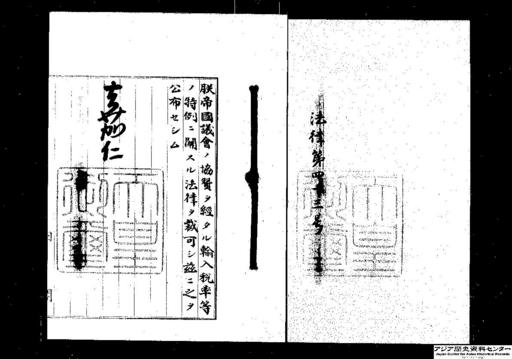 法律第四十三号
朕帝國議會ノ協賛ヲ經タル輸入税率等
ノ特例ニ關スル法律ヲ裁可シ茲ニ之ヲ
公布セシム
嘉仁
アジア歴史資料センター
Japan Center for Asian Historical Records